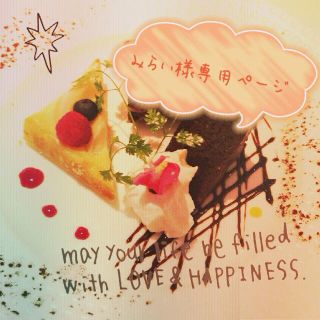 みらい様専用ページ
may your life be filled
with LOVE & HAPPINESS.